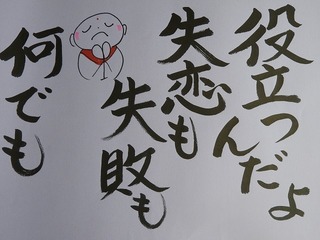 役立つんだよ
失恋も
失敗も
何でも